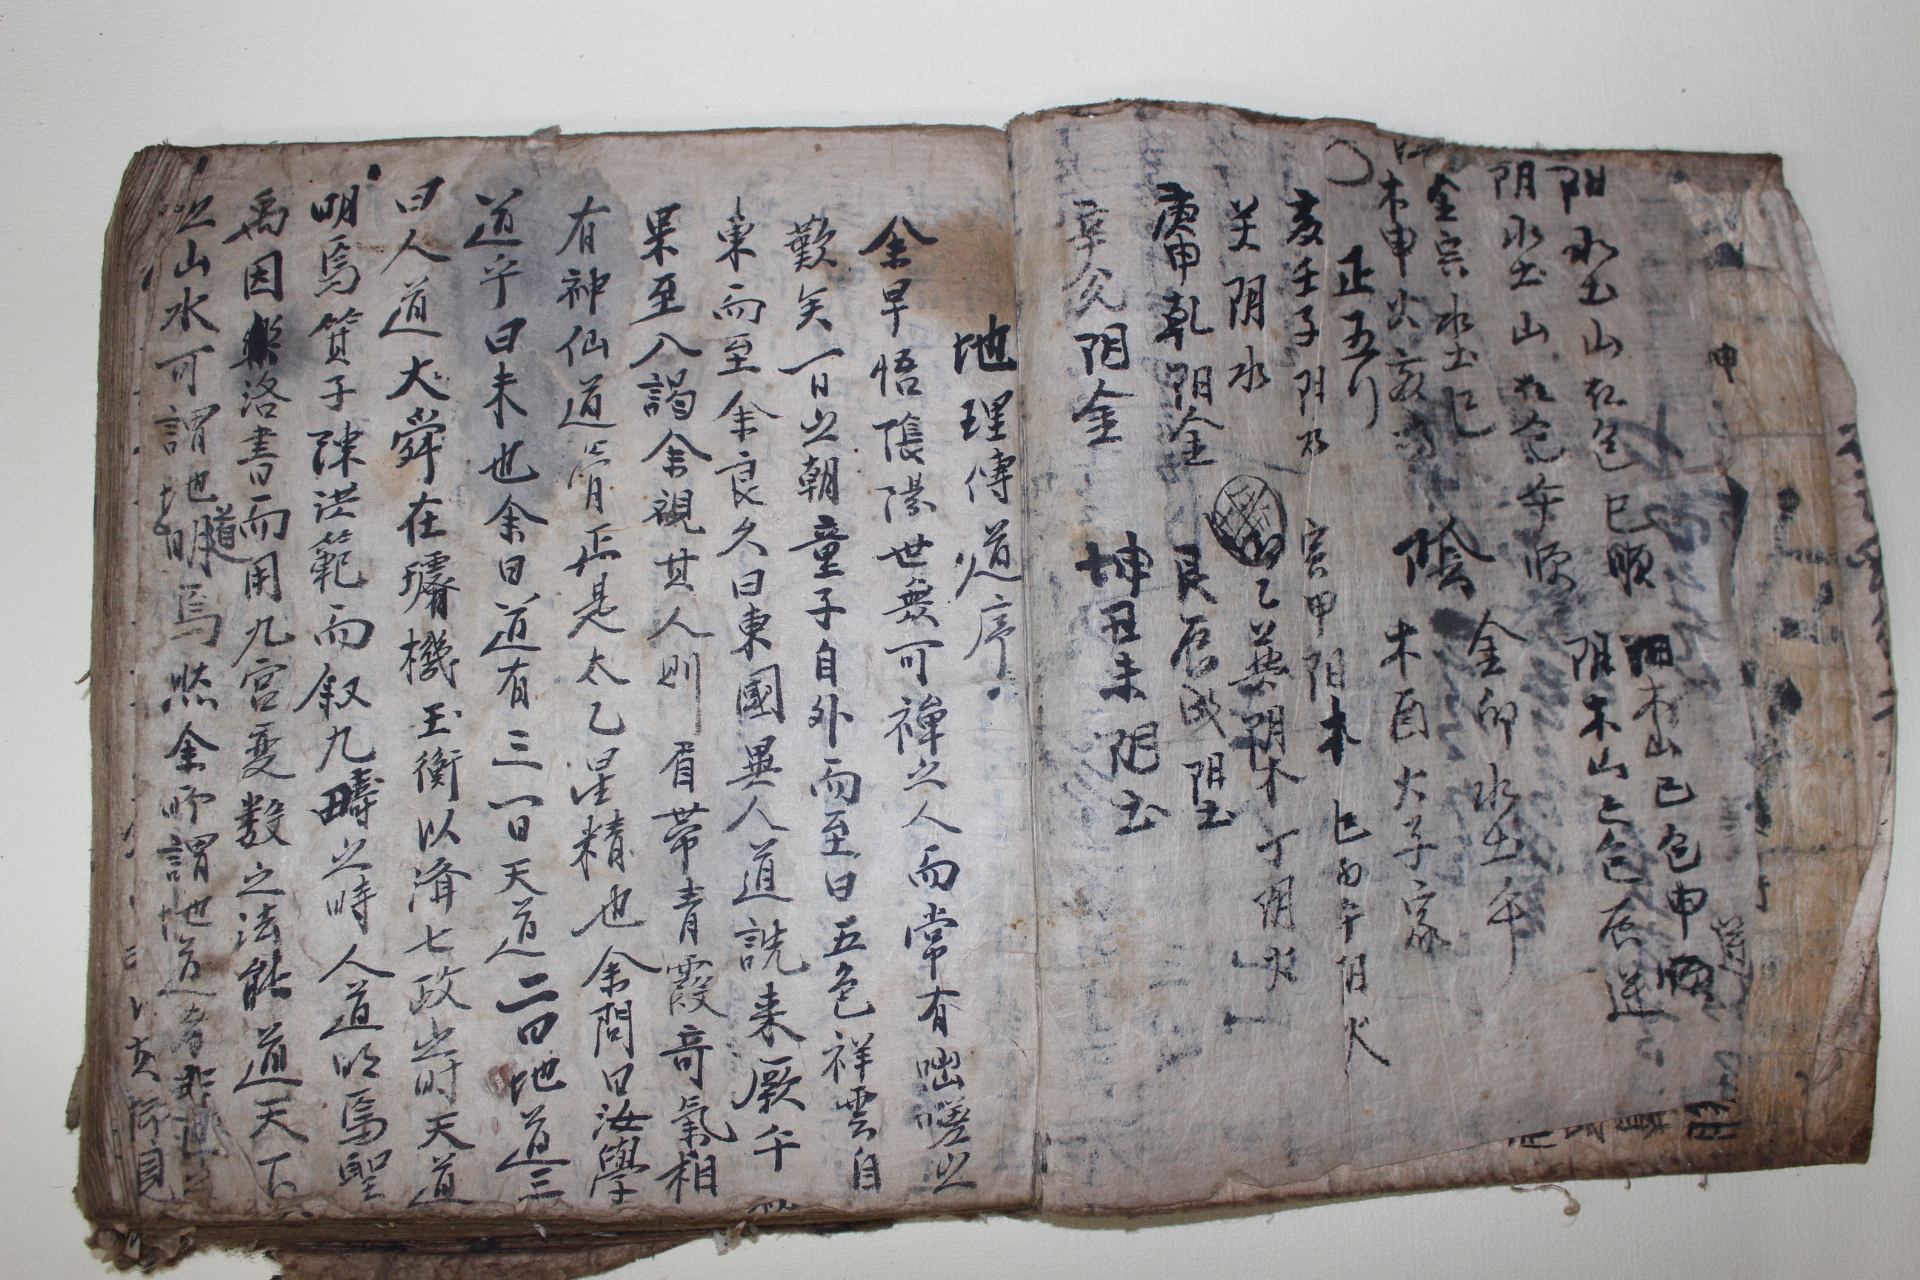 阳水土山在包巳順
阴水土山在包午順
阳木山巳包申順
阴木山亡包辰逆
金宗水土巳
金卯水土午
木申火亥
陰
木酉火子家
正五行
亥壬子阳水 寅甲阳木 巳丙午阳火
癸阴水 乙巽阴木 丁阴火
庚申乾阳金 艮辰戌阳土
辛兌阴金 坤丑未阴土
地理傳道序
余早悟陰陽世無可禪之人而常有咄嗟之
歎矣一日之朝童子自外而至曰五色祥雲自
東而至余良久曰東國異人道詵來厥午
果至入謁余視其人則眉帶青霞奇氣相
有神仙道骨正是太乙星精也余問曰汝學
道乎曰未也余曰道有三一曰天道二曰地道三
曰人道大舜在璿機玉衡以濟七政之時天道
明焉箕子陳洪範而叙九疇之時人道明焉聖
禹因洛書而用九宮變數之法能道天下
之山水可謂地道明焉然余所謂地道者非